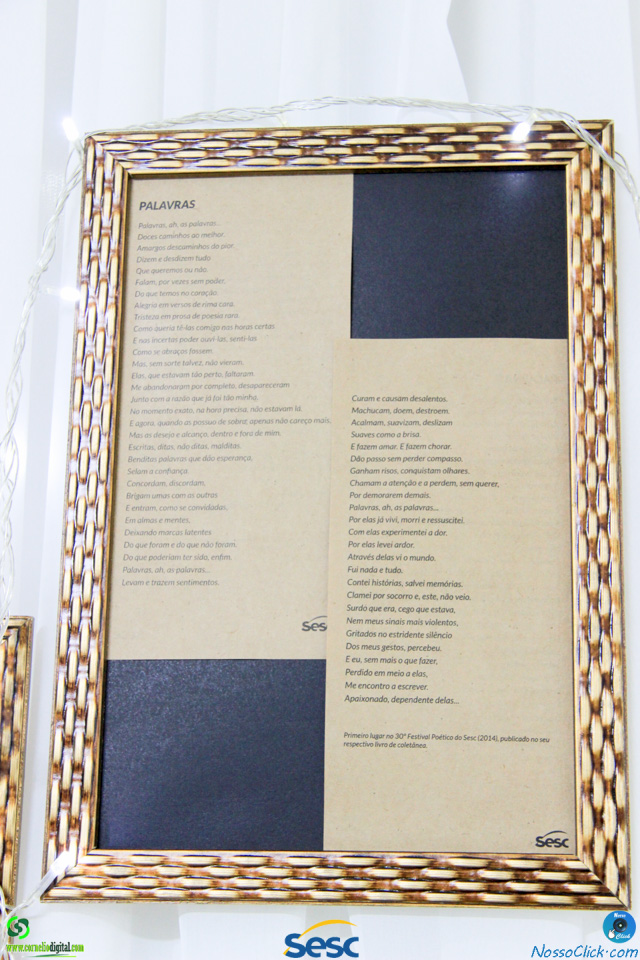 PALAVRAS
Palavras, ah, as palavras...
Doces caminhos ao melhor.
Amargos descaminhos do pior.
Dizem e desdizem tudo
Que queremos ou não.
Falam, por vezes sem poder,
Do que temos no coração.
Alegria em versos de rima cara.
Tristeza em prosa de poesia rara.
Como queria tê-las comigo nas horas certas
E nas incertas poder ouvi-las, senti-las
Como se abraços fossem.
Mas, sem sorte talvez, não vieram.
Elas, que estavam tão perto, faltaram.
Me abandonaram por completo, desapareceram
Junto com a razão que já foi tão minha.
No momento exato, na hora precisa, não estavam lá.
E agora, quando as possuo de sobra, apenas não careço mais.
Mas as desejo e alcanço, dentro e fora de mim.
Escritas, ditas, não ditas, malditas.
Benditas palavras que dão esperança,
Selam a confiança.
Concordam, discordam,
Brigam umas com as outras
E entram, como se convidadas,
Em almas e mentes,
Deixando marcas latentes
Do que foram e do que não foram.
Do que poderiam ter sido, enfim.
Palavras, ah, as palavras...
Levam e trazem sentimentos.
Sesc
Curam e causam desalentos.
Machucam, doem, destroem.
Acalmam, suavizam, deslizam
Suaves como a brisa.
E fazem amar. E fazem chorar.
Dão passo sem perder compasso.
Ganham risos, conquistam olhares.
Chamam a atenção e a perdem, sem querer,
Por demorarem demais.
Palavras, ah, as palavras...
Por elas já vivi, morri e ressuscitei.
Com elas experimentei a dor.
Por elas levei ardor.
Através delas vi o mundo.
Fui nada e tudo.
Contei histórias, salvei memórias.
Clamei por socorro e, este, não veio.
Surdo que era, cego que estava,
Nem meus sinais mais violentos,
Gritados no estridente silêncio
Dos meus gestos, percebeu.
E eu, sem mais o que fazer,
Perdido em meio a elas,
Me encontro a escrever.
Apaixonado, dependente delas...
Primeiro lugar no 30º Festival Poético do Sesc (2014), publicado no seu
respectivo livro de coletânea.
Sesc
www.corneliodigital.com
Sesc
Nosso
Click
NossoClick.com